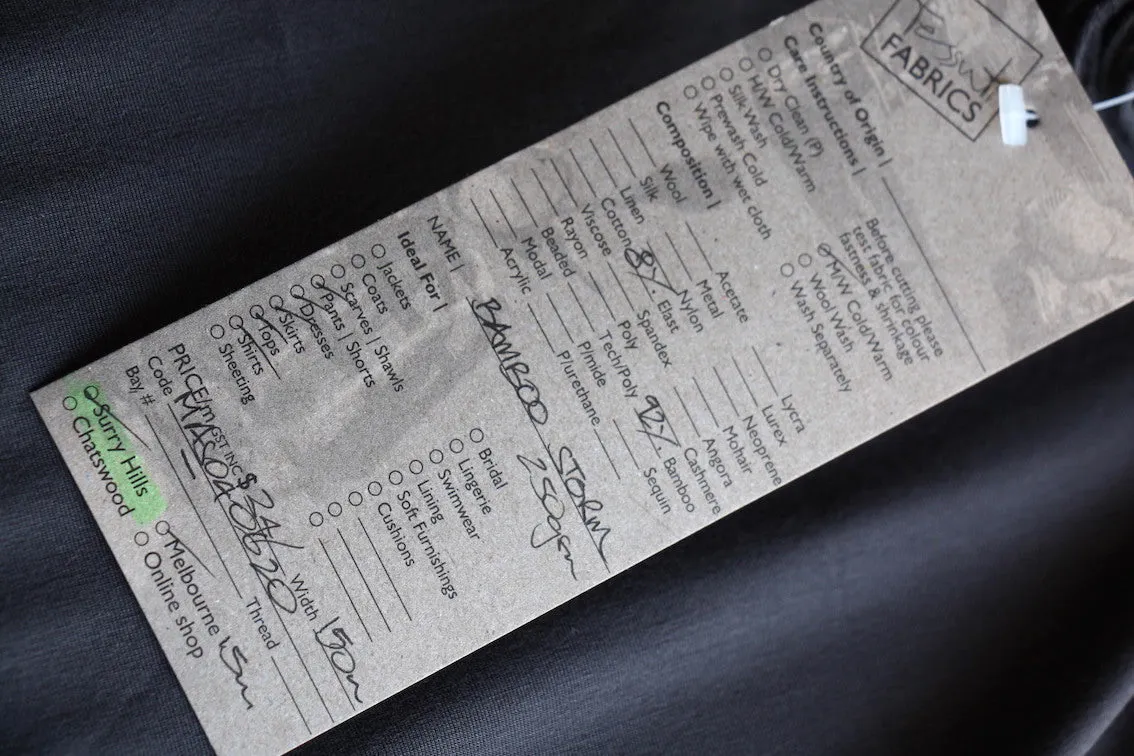 Tessuti
FABRICS
Country of Origin |
Care Instructions |
Dry Clean (P)
H/W Cold/Warm
Silk Wash
Prewash Cold
Wipe with wet cloth
Before cutting please
test fabric for colour
fastness & shrinkage
M/W Cold/Warm
Wool Wash
Wash Separately
Composition |
Wool
Silk
Linen
Cotton
Viscose
Rayon
Beaded
Modal
Acrylic
Acetate
Metal
Nylon
8% Elast
Spandex
Poly
Tech/Poly
P/mide
P/urethane
Lycra
Lurex
Neoprene
Mohair
Angora
Cashmere
92% Bamboo
Sequin
NAME | BAMBOO STORM
250gsm
Ideal For |
Jackets
Coats
Scarves | Shawls
Pants | Shorts
Dresses
Skirts
Tops
Shirts
Sheeting
Bridal
Lingerie
Swimwear
Lining
Soft Furnishings
Cushions
PRICE/m GST INC $ Width 150m
Code Thread
Bay #
Surry Hills
Chatswood
Melbourne 15m
Online shop